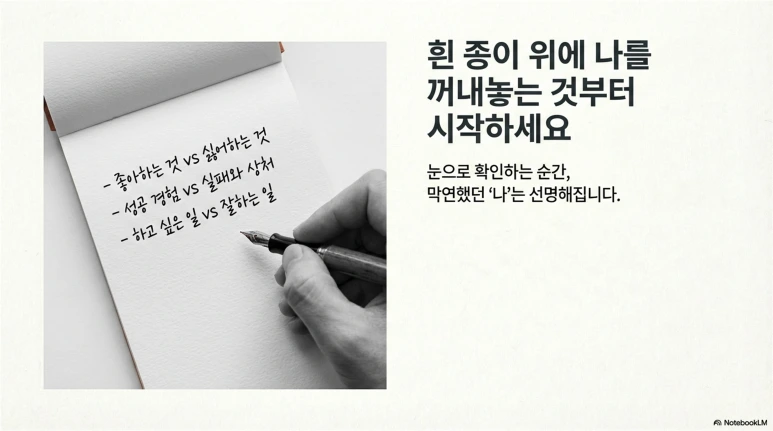 - 좋아하는 것 vs 싫어하는 것
- 성공 경험 vs 실패와 상처
- 하고 싶은 일 vs 잘하는 일
흰 종이 위에 나를
꺼내놓는 것부터
시작하세요
눈으로 확인하는 순간,
막연했던 ‘나’는 선명해집니다.
NotebookLM